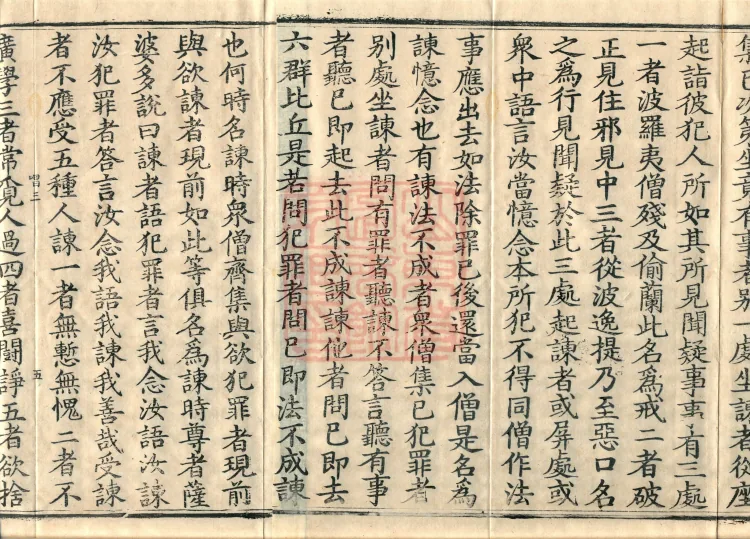 集已次第坐竟有事者別一處坐諫者從座
起詣彼犯人所如其所見聞疑事事有三處
一者波羅夷僧殘及偷蘭此名爲戒二者破
正見住邪見中三者從波逸提乃至惡口名
之爲行見聞疑於此三處起諫者或屏處或
衆中語言汝當憶念本所犯不得同僧作法
事應出去如法除罪已後還當入僧是名爲
諫憶念也有諫法不成者衆僧集已犯罪者
別處坐諫者問有罪者聽諫不答言聽有事
者聽已即起去此不成諫諫他者問已即去
六群比丘是若問犯罪者問已即法不成諫
也何時名諫時衆僧齊集與欲犯罪者現前
與欲諫者現前如此等俱名爲諫時尊者薩
婆多說曰諫者語犯罪者言我念汝語汝諫
汝犯罪者答言汝念我語我諫我善哉受諫
者不應受五種人諫一者無慙無愧二者不
廣學三者常覓人過四者喜鬪諍五者欲捨
唱三
五